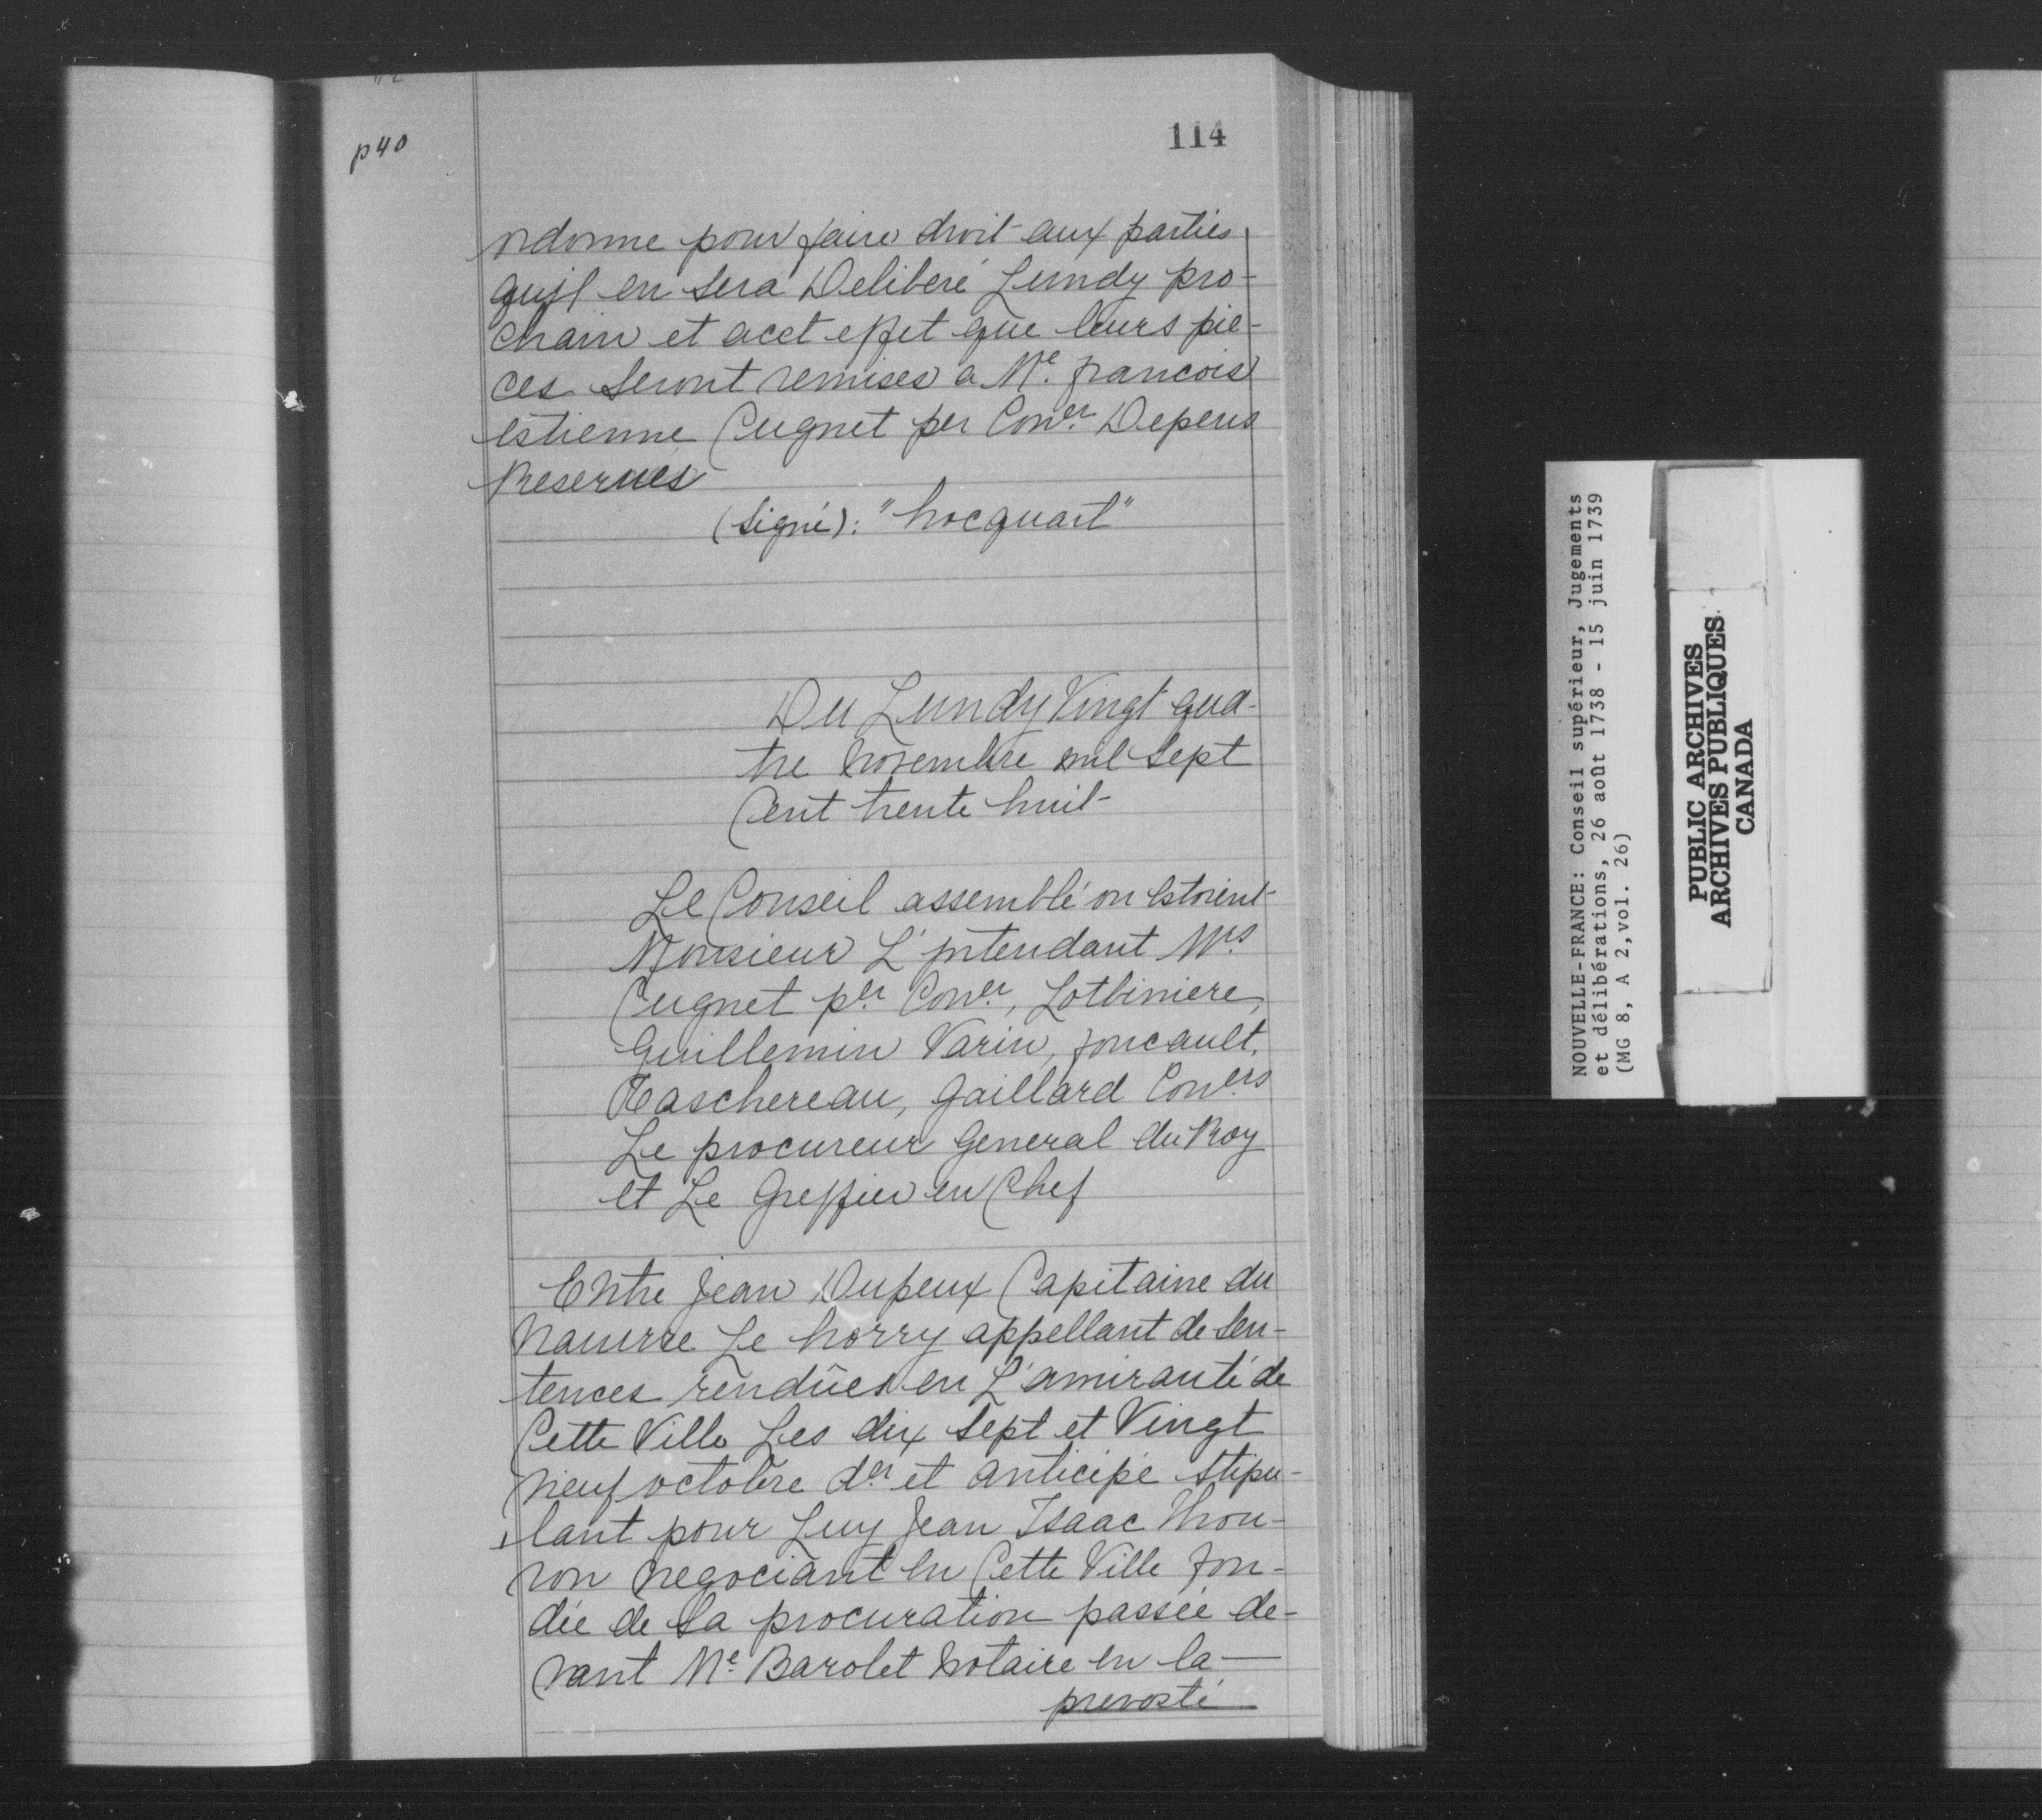 p 40
114
ordonne pour faire droit aux parties
qu'jl en sera Deliberé Lundy pro-
chain et acet effet que leurs pie-
ces seront remises a Me. francois
estienne Cugnet per Coner. Depens
Reserues
(signé): "hocquart"
Du Lundy Vingt qua-
tre novembre mil sept
Cent trente huit
Le Conseil assemblé ou estoient
Monsieur L'jntendant Mrs
Cugnet per Coner, Lotbiniere,
Guillemin Varin, foucault,
Taschereau, gaillard Coners
Le procureur general du Roy
et Le Greffier en Chef
Entre Jean Dupeux Capitaine du
Nauirre Le horry appellant de sen-
tences rendûes en L'amirauté de
Cette Ville Les dix sept et Vingt
neuf octobre der et anticipé stipu-
lant pour Luy Jean Isaac Thou-
ron negociant en Cette Ville fon-
dée de sa procuration passée de-
vant Me. Barolet notaire en la
prevosté
NOUVELLE-FRANCE: Conseil supérieur, Jugements
et délibérations, 26 août 1738 - 15 juin 1739
(MG 8, A 2,vol. 26)
PUBLIC ARCHIVES
ARCHIVES PUBLIQUES
CANADA